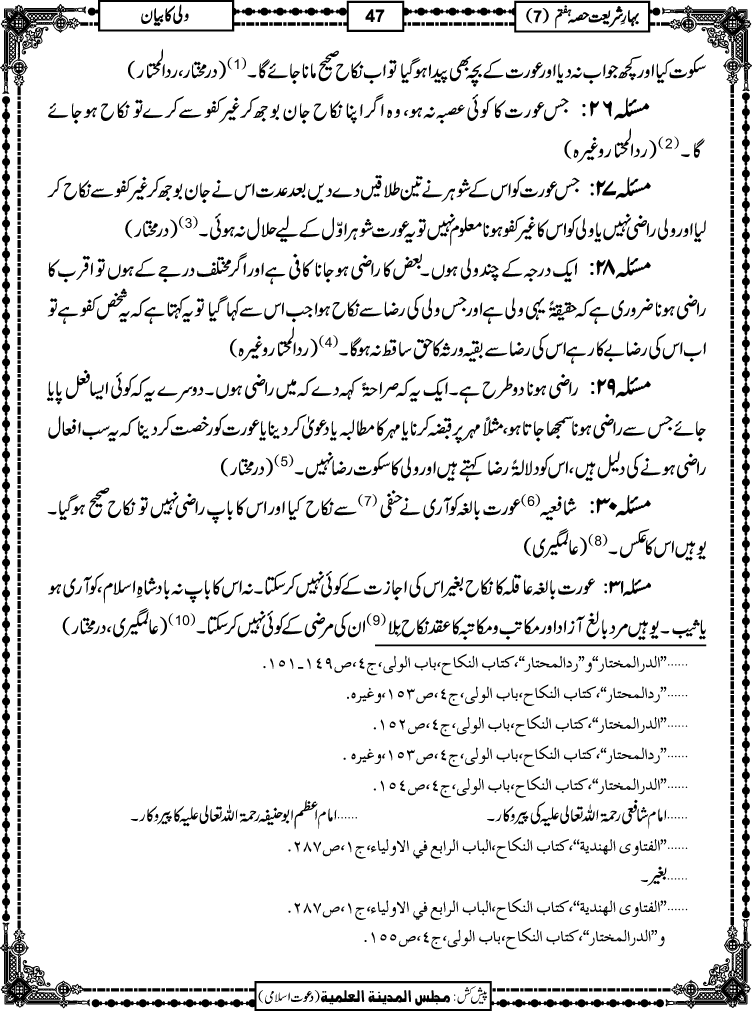 بہارِ شریعت حصہ ہفتم (7)
47
ولی کا بیان
سکوت کیا اور کچھ جواب نہ دیا اور عورت کے بچہ بھی پیدا ہو گیا تو اب نکاح صحیح مانا جائے گا۔(1) (درمختار، ردالمحتار)
مسئلہ ۲۶: جس عورت کا کوئی عصبہ نہ ہو، وہ اگر اپنا نکاح جان بوجھ کر غیر کفو سے کرے تو نکاح ہو جائے
گا۔(2) (ردالمحتار وغیرہ)
مسئلہ ۲۷: جس عورت کو اس کے شوہر نے تین طلاقیں دے دیں بعد عدت اس نے جان بوجھ کر غیر کفو سے نکاح کر
لیا اور ولی راضی نہیں یا ولی کو اس کا غیر کفو ہونا معلوم نہیں تو یہ عورت شوہر اوّل کے لیے حلال نہ ہوئی۔(3) (درمختار)
مسئلہ ۲۸: ایک درجہ کے چند ولی ہوں۔ بعض کا راضی ہو جانا کافی ہے اور اگر مختلف درجے کے ہوں تو اقرب کا
راضی ہونا ضروری ہے کہ حقیقۃً یہی ولی ہے اور جس ولی کی رضا سے نکاح ہوا جب اس سے کہا گیا تو یہ کہتا ہے کہ یہ شخص کفو ہے تو
اب اس کی رضا بے کار ہے اس کی رضا سے بقیہ ورثہ کا حق ساقط نہ ہوگا۔(4) (ردالمحتار وغیرہ)
مسئلہ ۲۹: راضی ہونا دو طرح ہے۔ ایک یہ کہ صراحۃً کہہ دے کہ میں راضی ہوں۔ دوسرے یہ کہ کوئی ایسا فعل پایا
جائے جس سے راضی ہونا سمجھا جاتا ہو، مثلاً مہر پر قبضہ کرنا یا مہر کا مطالبہ یا دعویٰ کر دینا یا عورت کو رخصت کر دینا کہ یہ سب افعال
راضی ہونے کی دلیل ہیں، اس کو دلالۃً رضا کہتے ہیں اور ولی کا سکوت رضا نہیں۔(5) (درمختار)
مسئلہ ۳۰: شافعیہ(6) عورت بالغہ کوآری نے حنفی(7) سے نکاح کیا اور اس کا باپ راضی نہیں تو نکاح صحیح ہو گیا۔
یوہیں اس کا عکس۔(8) (عالمگیری)
مسئلہ ۳۱: عورت بالغہ عاقلہ کا نکاح بغیر اس کی اجازت کے کوئی نہیں کر سکتا۔ نہ اس کا باپ نہ بادشاہِ اسلام، کوآری ہو
یا ثیب۔ یوہیں مرد بالغ آزاد اور مکاتب و مکاتبہ کا عقد نکاح بلا(9) ان کی مرضی کے کوئی نہیں کر سکتا۔(10) (عالمگیری، درمختار)
......”الدرالمختار“ و ”ردالمحتار“،کتاب النکاح،باب الولی،ج٤،ص١٤٩-١٥١.
......”ردالمحتار“،کتاب النکاح،باب الولی،ج٤،ص١٥٣،وغیرہ.
......”الدرالمختار“،کتاب النکاح،باب الولی،ج٤،ص١٥٢.
......”ردالمحتار“،کتاب النکاح،باب الولی،ج٤،ص١٥٣،وغیرہ .
......”الدرالمختار“،کتاب النکاح،باب الولی،ج٤،ص١٥٤.
......امام شافعی رحمۃ اللہ تعالٰی علیہ کی پیروکار۔ ......امام اعظم ابو حنیفہ رحمۃ اللہ تعالٰی علیہ کا پیروکار۔
......”الفتاوی الهندية“،کتاب النکاح،الباب الرابع في الاولياء،ج١،ص٢٨٧.
......بغیر۔
......”الفتاوی الهندية“،کتاب النکاح،الباب الرابع في الاولياء،ج١،ص٢٨٧.
و ”الدرالمختار“،کتاب النکاح،باب الولی،ج٤،ص١٥٥.
پیش کش: مجلس المدينة العلمية (دعوت اسلامی)